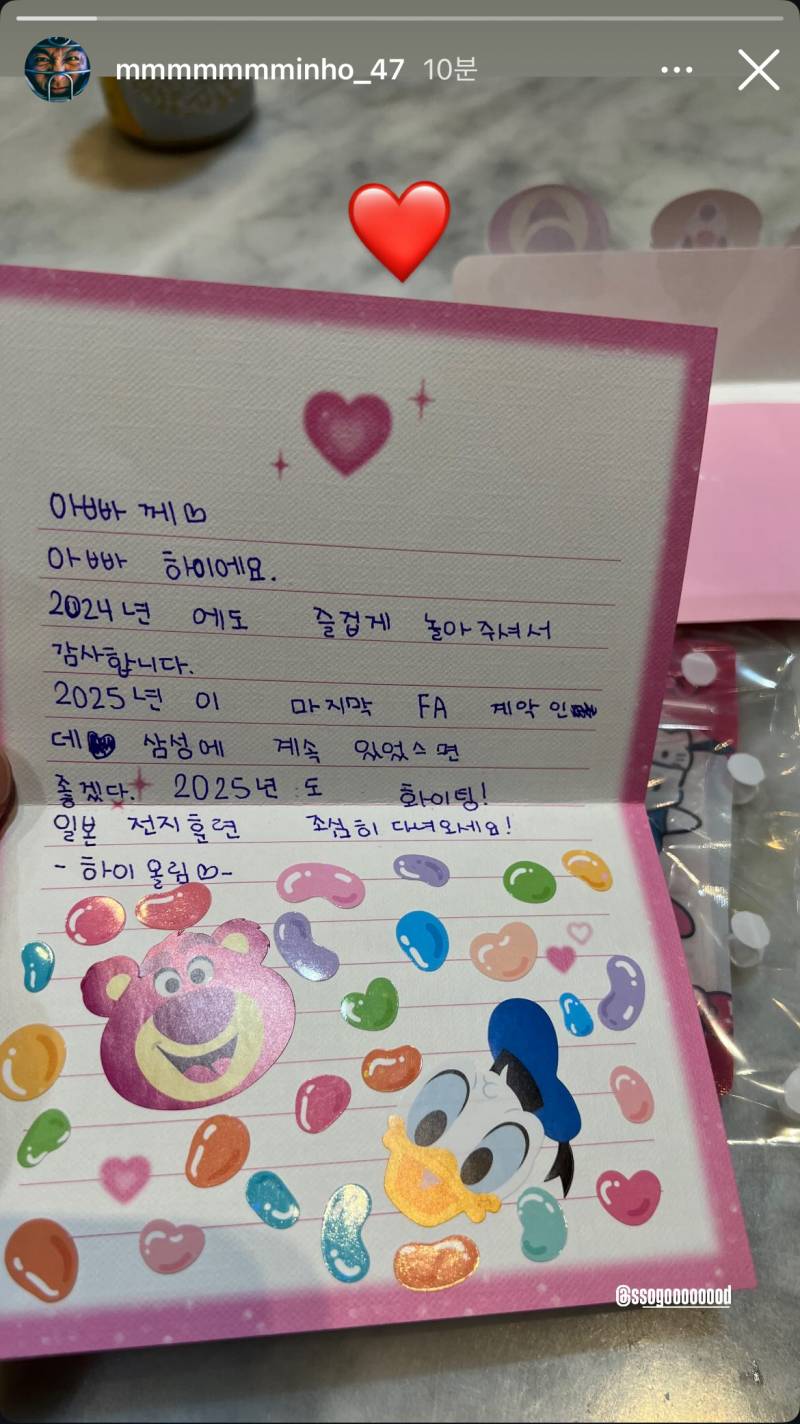 mmmmmmminho_47 10분
아빠 께♡
아빠 하이에요.
2024년 에도 즐겁게 놀아주셔서
감사합니다.
2025년 이 마지막 FA 계약 인
데 삼성에 계속 있었스면
좋겠다. 2025년 도 화이팅!
일본 전지훈련 조심히 다녀오세요!
- 하이 올림♡-
@ssogoooooood